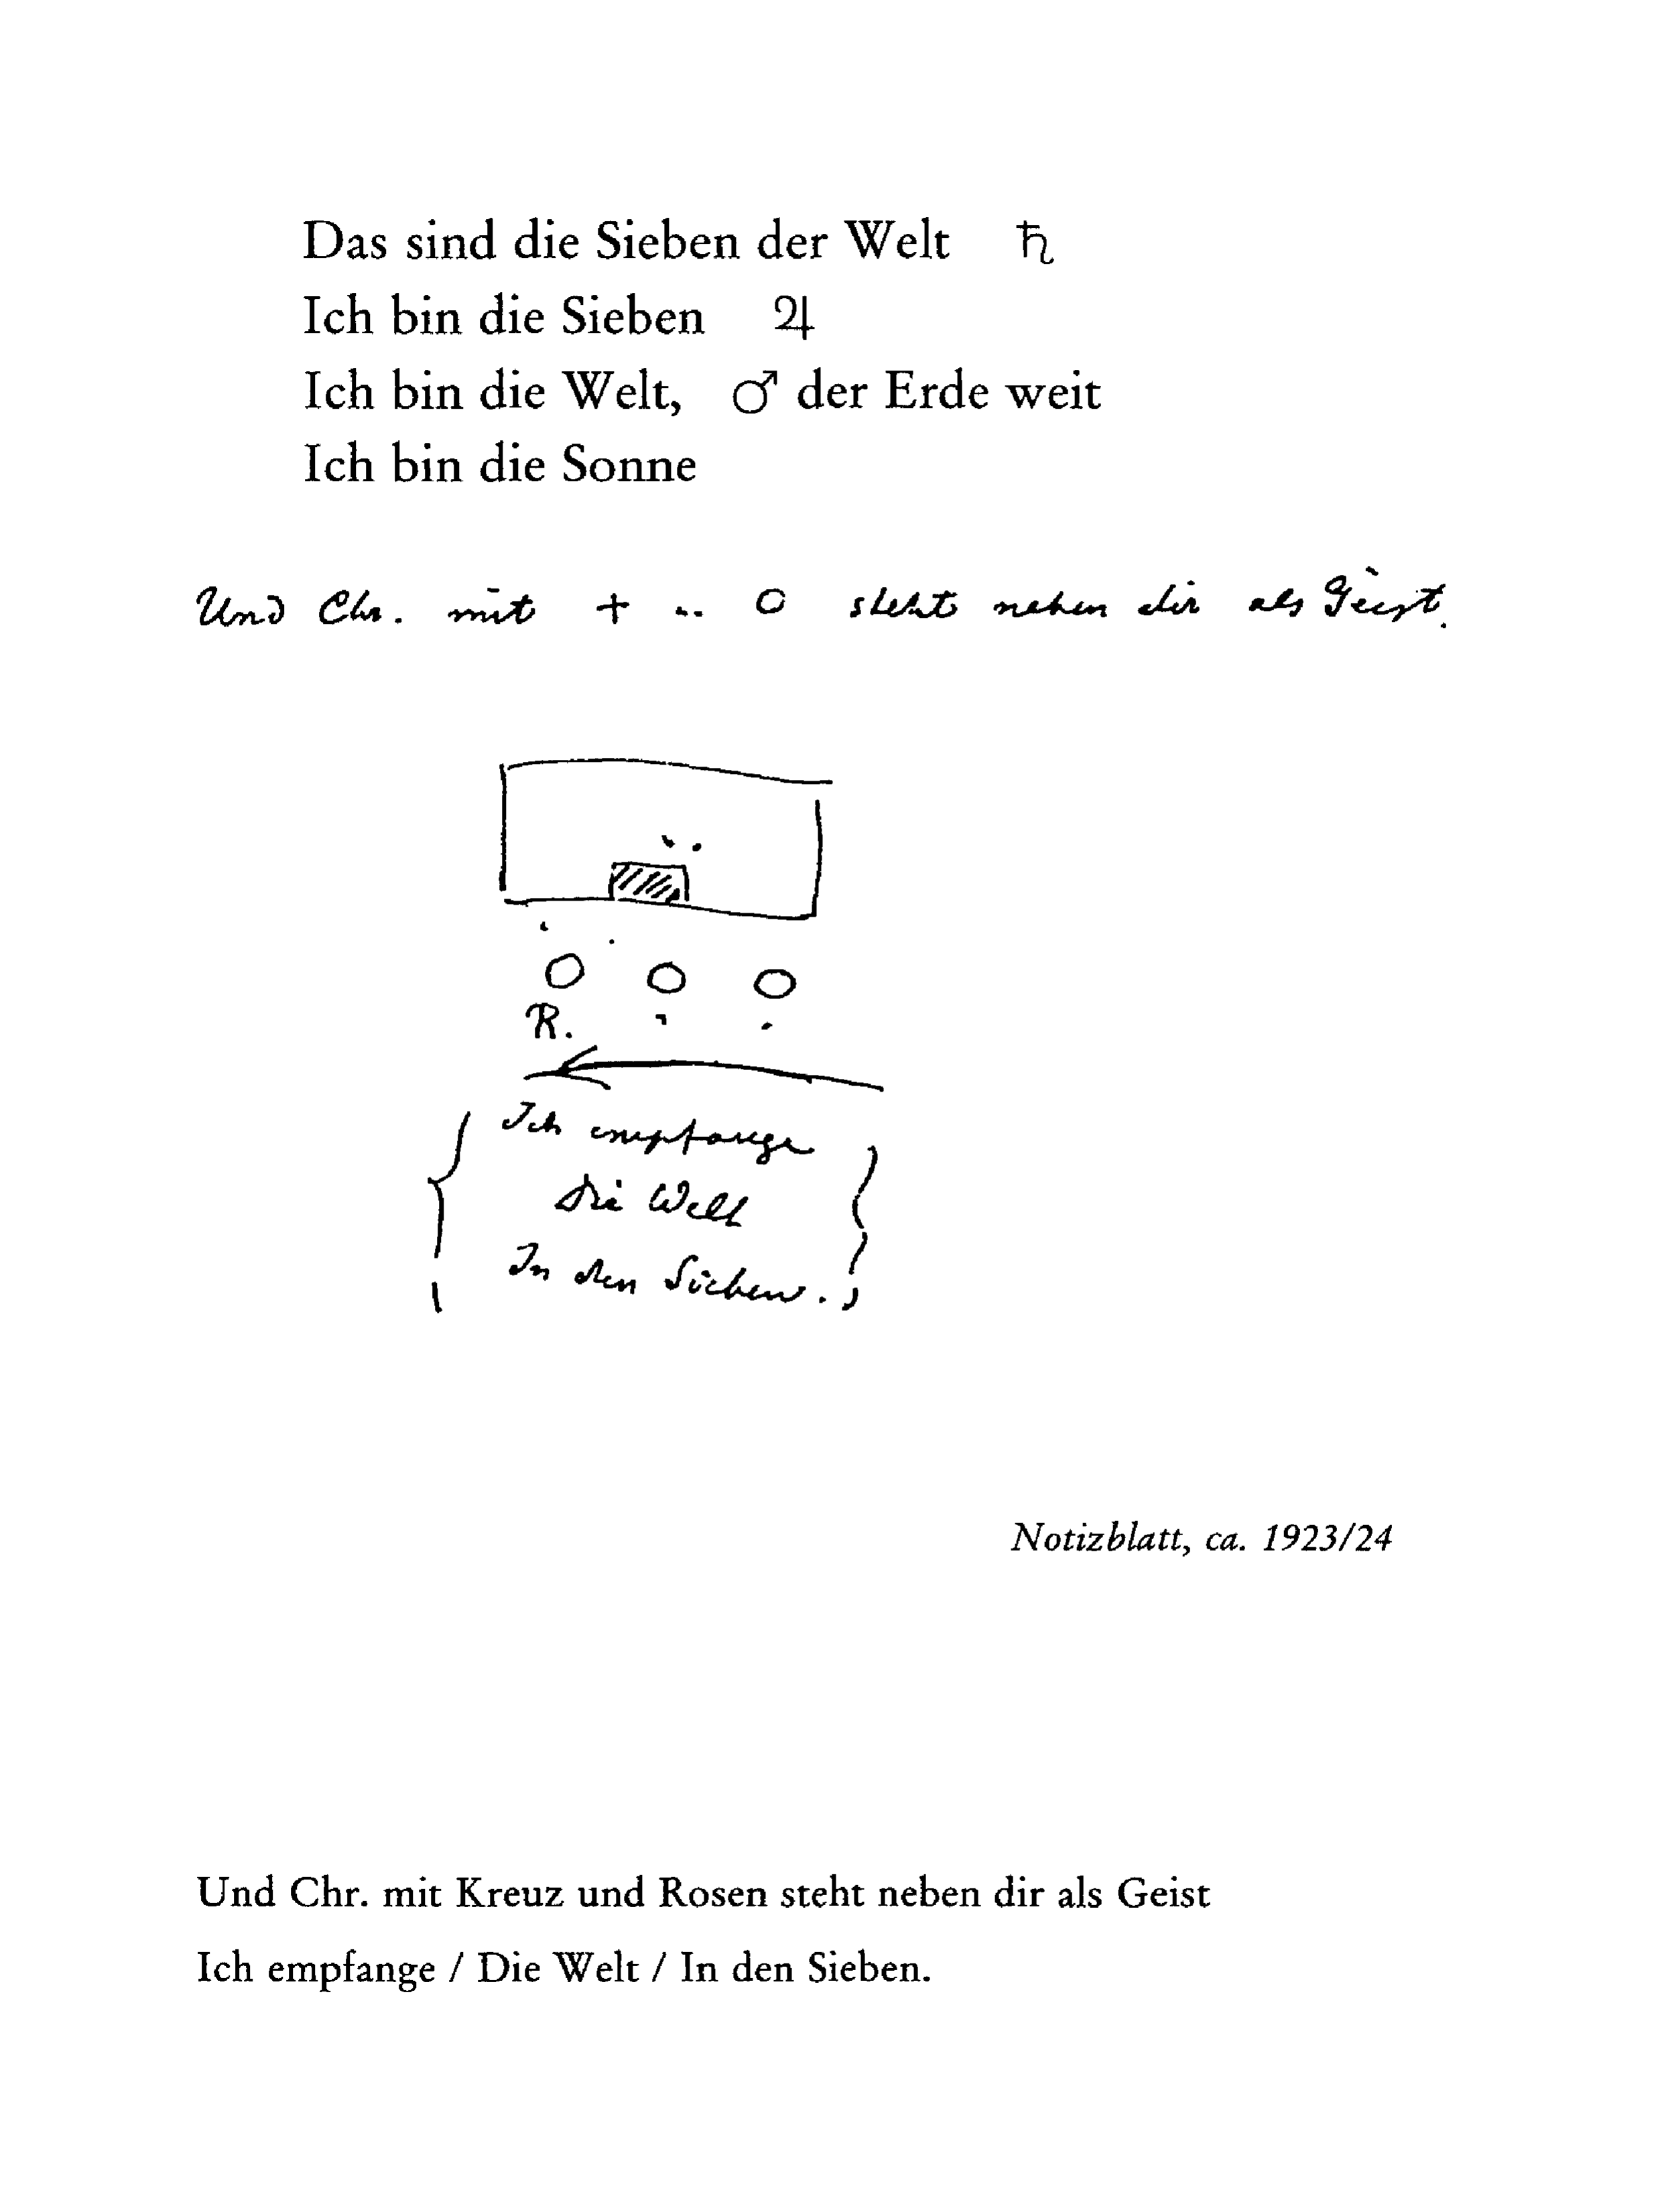 Das sind die Sieben der Welt ♄
Ich bin die Sieben ♃
Ich bin die Welt, ♂ der Erde weit
Ich bin die Sonne
Und Chr. mit + .. O steht neben dir als Geist.
R.
Ich empfange
Die Welt
In den Sieben.
Notizblatt, ca. 1923/24
Und Chr. mit Kreuz und Rosen steht neben dir als Geist
Ich empfange / Die Welt / In den Sieben.